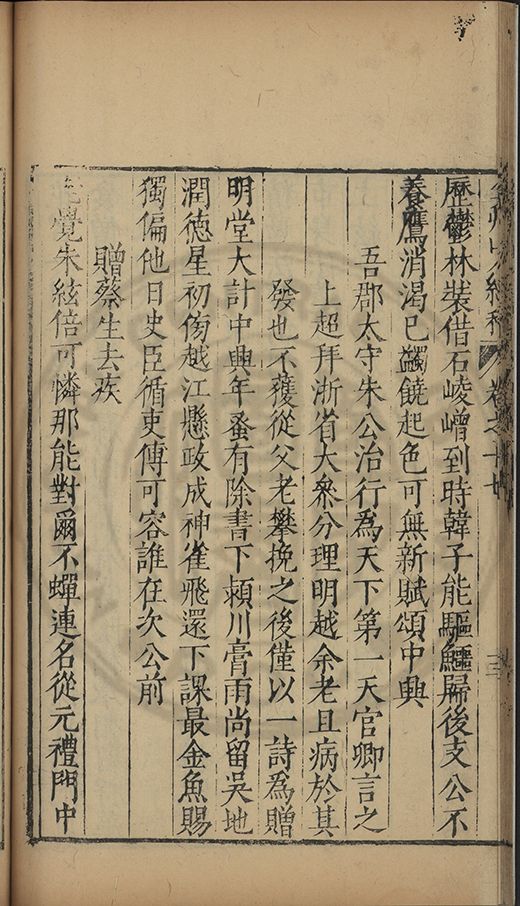 續稿 卷之十七
三
歷鬱林裝借石崚嶒到時韓子能驅鱷歸後支公不
養鷹消渴已蠲饒起色可無新賦頌中興
吾郡太守朱公治行為天下第一天官卿言之
上超拜浙省大叅分理明越余老且病於其
發也不獲從父老攀挽之後僅以一詩為贈
明堂大計中興年蚤有除書下潁川膏雨尚留吳地
潤德星初傍越江懸政成神雀飛還下課最金魚賜
獨偏他日史臣循吏傳可容誰在次公前
贈蔡生去疾
覺朱絃倍可憐那能對爾不蟬連名從元禮門中